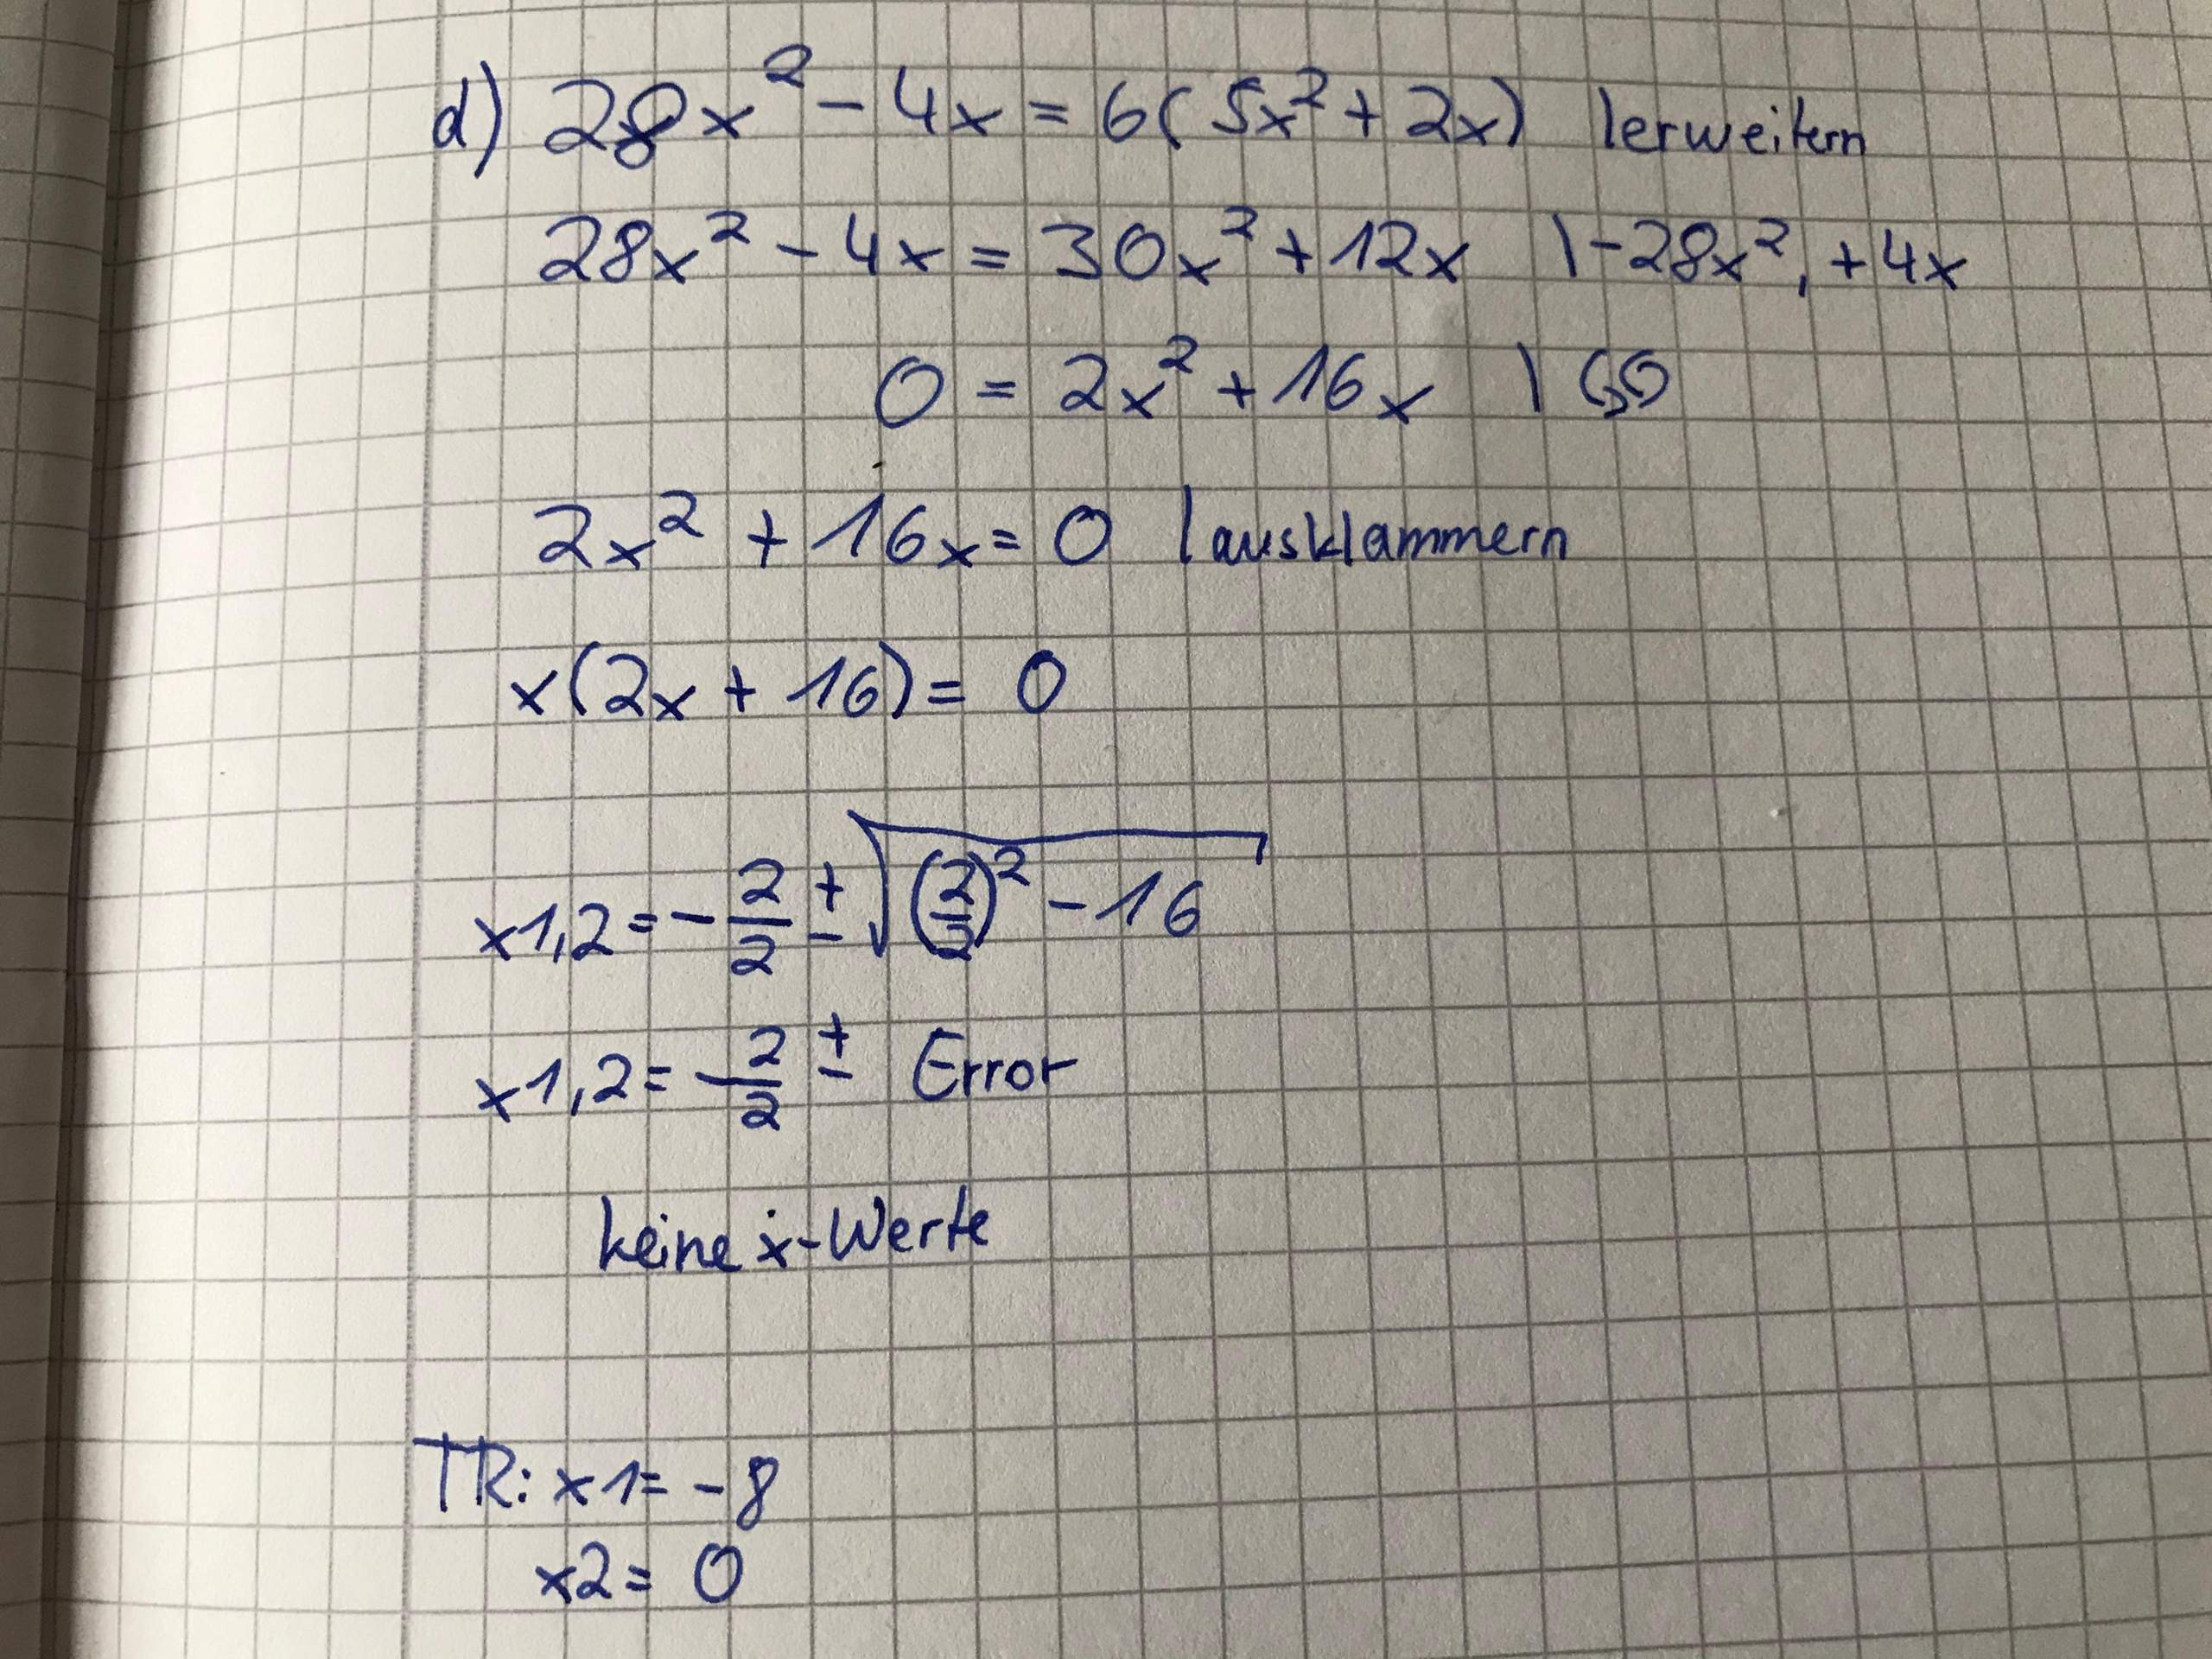 d) 28x² - 4x = 6(5x² + 2x) | erweitern
28x² - 4x = 30x² + 12x | -28x², +4x
0 = 2x² + 16x |
2x² + 16x = 0 | ausklammern
x(2x + 16) = 0
x1,2 = - 2/2 ± √((2/2)² - 16)
x1,2 = - 2/2 ± Error
keine x-Werte
TR: x1 = -8
x2 = 0